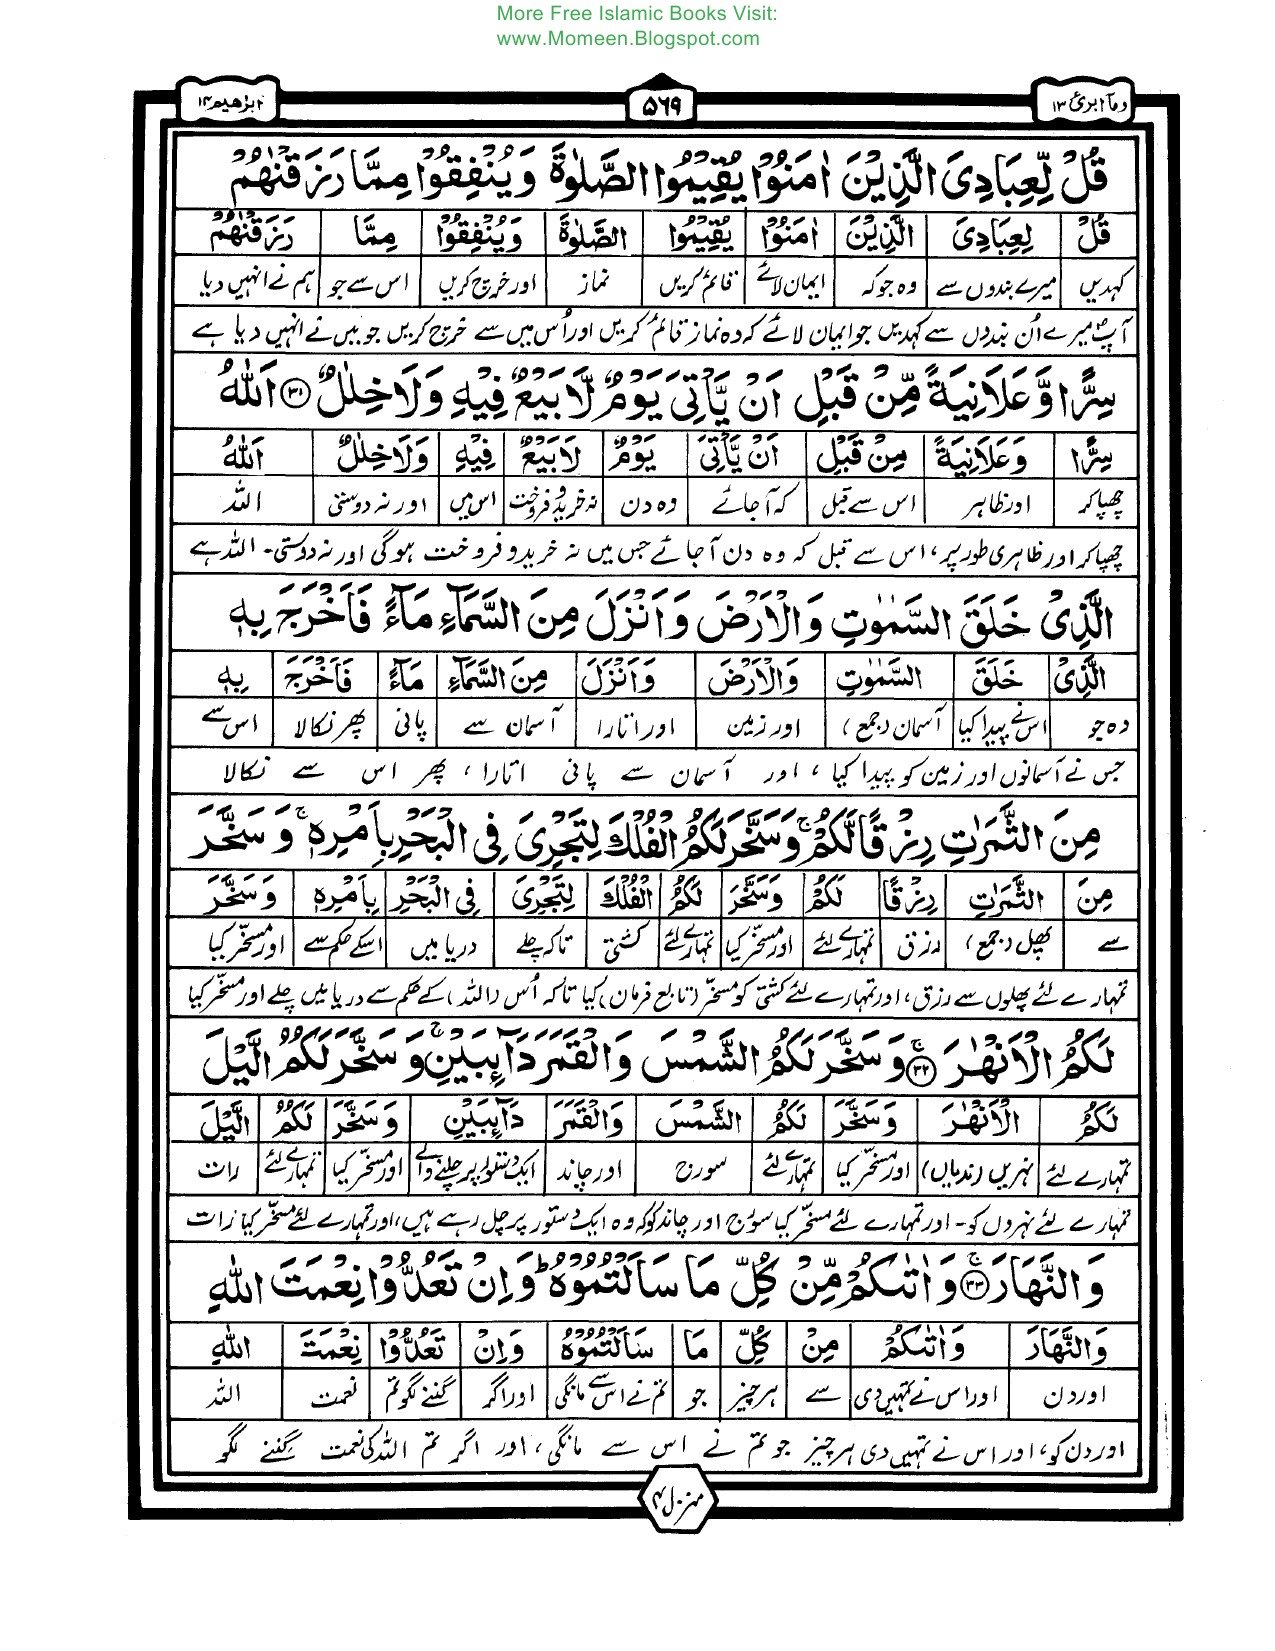 More Free Islamic Books Visit:
www.Momeen.Blogspot.com
ومآ ابرئ ۱۳ ۵۶۹ ابرٰهيم ۱۴
قُلْ لِّعِبَادِیَ الَّذِیْنَ اٰمَنُوْا یُقِیْمُوا الصَّلٰوةَ وَیُنْفِقُوْا مِمَّا رَزَقْنٰهُمْ
قُلْ لِعِبَادِیَ الَّذِیْنَ اٰمَنُوْا یُقِیْمُوا الصَّلٰوةَ وَیُنْفِقُوْا مِمَّا رَزَقْنٰهُمْ
کہدیں میرے بندوں سے وہ جو کہ ایمان لائے قائم کریں نماز اور خرچ کریں اس سے جو ہم نے انہیں دیا
آپؐ میرے اُن بندوں سے کہدیں جو ایمان لائے کہ وہ نماز قائم کریں اور اُس میں سے خرچ کریں جو میں نے انہیں دیا ہے
سِرًّا وَّعَلَانِیَةً مِّنْ قَبْلِ اَنْ یَّاْتِیَ یَوْمٌ لَّا بَیْعٌ فِیْهِ وَلَا خِلٰلٌ ۳۱ اَللّٰهُ
سِرًّا وَعَلَانِیَةً مِنْ قَبْلِ اَنْ یَّاْتِیَ یَوْمٌ لَا بَیْعٌ فِیْهِ وَلَا خِلٰلٌ اَللّٰهُ
چھپا کر اور ظاہر اس سے قبل کہ آجائے وہ دن نہ خرید و فروخت اس میں اور نہ دوستی اللہ
چھپا کر اور ظاہری طور پر، اس سے قبل کہ وہ دن آجائے جس میں نہ خرید و فروخت ہوگی اور نہ دوستی۔ اللہ ہے
الَّذِیْ خَلَقَ السَّمٰوٰتِ وَالْاَرْضَ وَاَنْزَلَ مِنَ السَّمَآءِ مَآءً فَاَخْرَجَ بِهٖ
الَّذِیْ خَلَقَ السَّمٰوٰتِ وَالْاَرْضَ وَاَنْزَلَ مِنَ السَّمَآءِ مَآءً فَاَخْرَجَ بِهٖ
وہ جو اس نے پیدا کیا آسمان (جمع) اور زمین اور اتارا آسمان سے پانی پھر نکالا اس سے
جس نے آسمانوں اور زمین کو پیدا کیا، اور آسمان سے پانی اتارا، پھر اس سے نکالا
مِنَ الثَّمَرٰتِ رِزْقًا لَّكُمْ ۚ وَسَخَّرَ لَكُمُ الْفُلْكَ لِتَجْرِیَ فِی الْبَحْرِ بِاَمْرِهٖ ۚ وَسَخَّرَ
مِنَ الثَّمَرٰتِ رِزْقًا لَكُمْ وَسَخَّرَ لَكُمُ الْفُلْكَ لِتَجْرِیَ فِی الْبَحْرِ بِاَمْرِهٖ وَسَخَّرَ
سے پھل (جمع) رزق تمہارے لئے اور مسخّر کیا تمہارے لئے کشتی تاکہ چلے دریا میں اسکے حکم سے اور مسخّر کیا
تمہارے لئے پھلوں سے رزق، اور تمہارے لئے کشتی کو مسخّر (تابع فرمان) کیا تاکہ اُس (اللہ) کے حکم سے دریا میں چلے اور مسخّر کیا
لَكُمُ الْاَنْهٰرَ ۚ ۳۲ وَسَخَّرَ لَكُمُ الشَّمْسَ وَالْقَمَرَ دَآىِٕبَیْنِ ۚ وَسَخَّرَ لَكُمُ الَّیْلَ
لَكُمُ الْاَنْهٰرَ وَسَخَّرَ لَكُمُ الشَّمْسَ وَالْقَمَرَ دَآىِٕبَیْنِ وَسَخَّرَ لَكُمُ الَّیْلَ
تمہارے لئے نہریں (ندیاں) اور مسخّر کیا تمہارے لئے سورج اور چاند ایک دستور پر چلنے والے اور مسخّر کیا تمہارے لئے رات
تمہارے لئے نہروں کو۔ اور تمہارے لئے مسخّر کیا سورج اور چاند کو کہ وہ ایک دستور پر چل رہے ہیں، اور تمہارے لئے مسخّر کیا رات
وَالنَّهَارَ ۚ ۳۳ وَاٰتٰىكُمْ مِّنْ كُلِّ مَا سَاَلْتُمُوْهُ ؕ وَاِنْ تَعُدُّوْا نِعْمَتَ اللّٰهِ
وَالنَّهَارَ وَاٰتٰىكُمْ مِنْ كُلِّ مَا سَاَلْتُمُوْهُ وَاِنْ تَعُدُّوْا نِعْمَتَ اللّٰهِ
اور دن اور اس نے تمہیں دی سے ہر چیز جو تم نے اس سے مانگی اور اگر گننے لگو تم نعمت اللہ
اور دن کو، اور اس نے تمہیں دی ہر چیز جو تم نے اس سے مانگی، اور اگر تم اللہ کی نعمت گننے لگو
منزل ۳